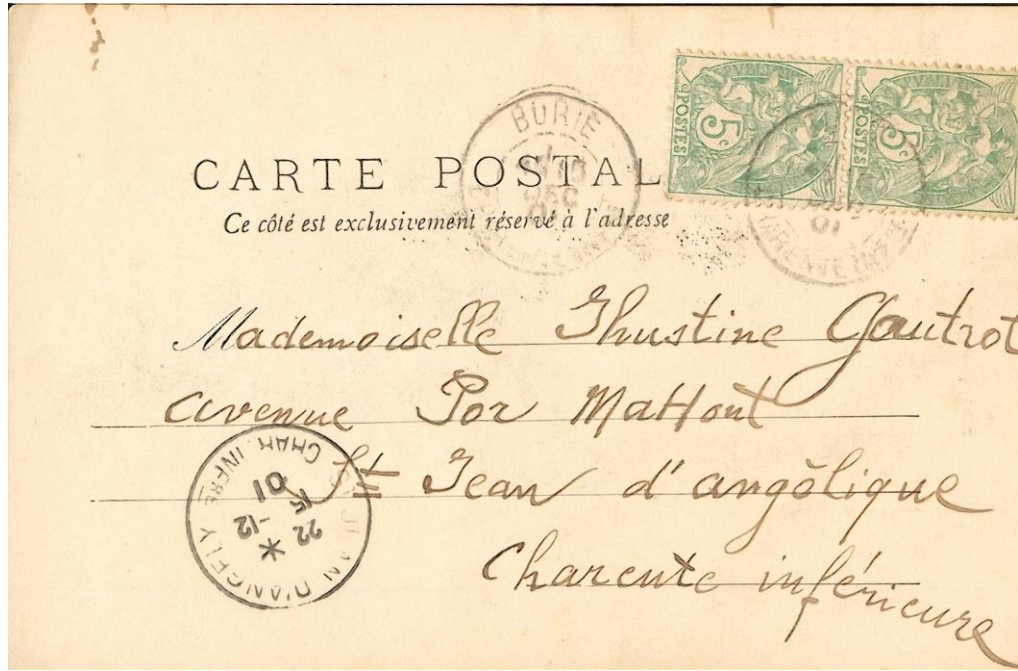 BURIE
RÉPUBLIQUE
5c
POSTES
5c
POSTES
CARTE POSTAL
Ce côté est exclusivement réservé à l'adresse
DEC
01
Mademoiselle Jhustine Gautrot
avenue Por Mahont
St Jean d'angélique
Charente inférieure
ST JEAN D'ANGELY CHAR. INFRE
22 -12
15
01